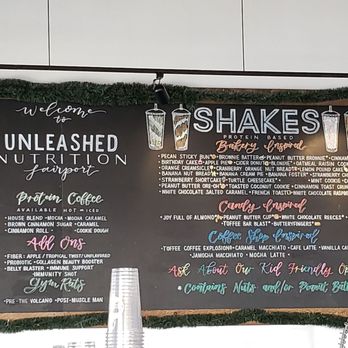 Welcome
to
UNLEASHED
NUTRITION
Fairport
Protein Coffee
AVAILABLE HOT • ICED
HOUSE BLEND • MOCHA • MOCHA CARAMEL
BROWN CINNAMON SUGAR • CARAMEL
CINNAMON ROLL • COOKIE DOUGH
Add Ons
FIBER: APPLE / TROPICAL TWIST / UNFLAVORED
PROBIOTIC • COLLAGEN BEAUTY BOOSTER
BELLY BLASTER • IMMUNE SUPPORT
IMMUNITY SHOT
Gym Rats
PRE-THE VOLCANO • POST-MUSCLE MAN
SHAKES
PROTEIN BASED
Bakery Inspired
PECAN STICKY BUN* • BROWNIE BATTER • PEANUT BUTTER BROWNIE* • CINNAMON
BIRTHDAY CAKE • APPLE PIE • CIDER DONUT • BLONDIE* • OATMEAL RAISIN COO
ORANGE CREAMSICLE • ORANGE NUT BREAD* • LEMON POUND CAKE
BANANA NUT BREAD* • BANANA CREAM PIE • BANANA FOSTER • STRAWBERRY
STRAWBERRY SHORTCAKE • TURTLE CHEESECAKE* • MINT COOKIE
PEANUT BUTTER OREO* • TOASTED COCONUT COOKIE • CINNAMON TOAST CRUN
WHITE CHOCOLATE SALTED CARAMEL • FRENCH TOAST • WHITE CHOCOLATE RASPB
Candy Inspired
JOY FULL OF ALMONDS* • PEANUT BUTTER CUP* • WHITE CHOCOLATE REECES*
TOFFEE BAR BLAST • BUTTERFINGERS*
Coffee Shop Inspired
TOFFEE COFFEE EXPLOSION • CARAMEL MACCHIATO • CAFE LATTE • VANILLA CA
JAMOCHA MACCHIATO • MOCHA LATTE
Ask About Our Kid Friendly O
* Contains Nuts and/or Peanut Butt